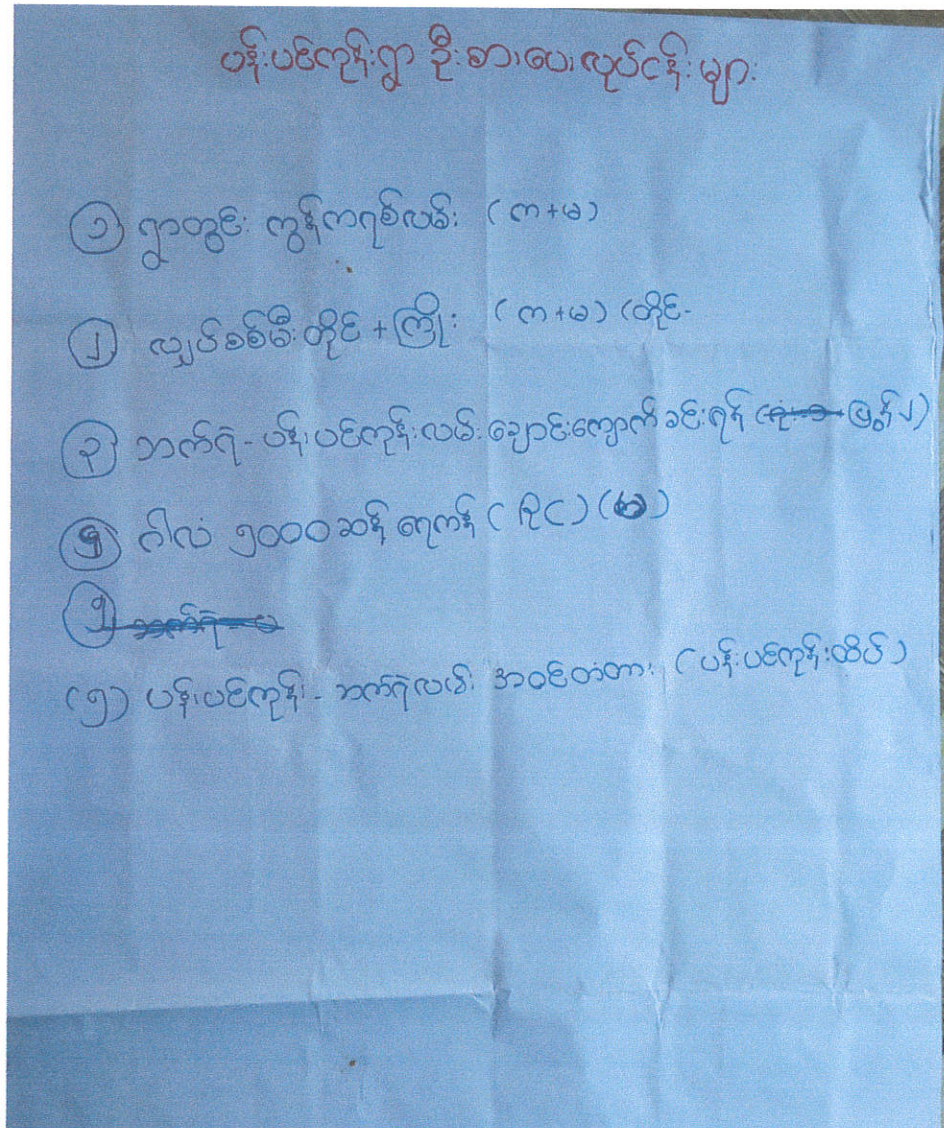 ပန်းပင်ကုန်းရွာ ဦးစားပေးလုပ်ငန်းများ
၁ ရွာတွင်း ကွန်ကရစ်လမ်း (က+မ)
၂ လျှပ်စစ်မီးတိုင်+ကြိုး (က+မ) (တိုင်-
၃ ဘက်ရဲ-ပန်းပင်ကုန်းလမ်းချောင်းကျောက်ခင်းရန်
၄ ဂါလံ ၅၀၀၀ ဆန့် ရေကန် (မ)
၅
(၅) ပန်းပင်ကုန်း-ဘက်ရဲလမ်း အဝင်တံတား (ပန်းပင်ကုန်းထိပ်)